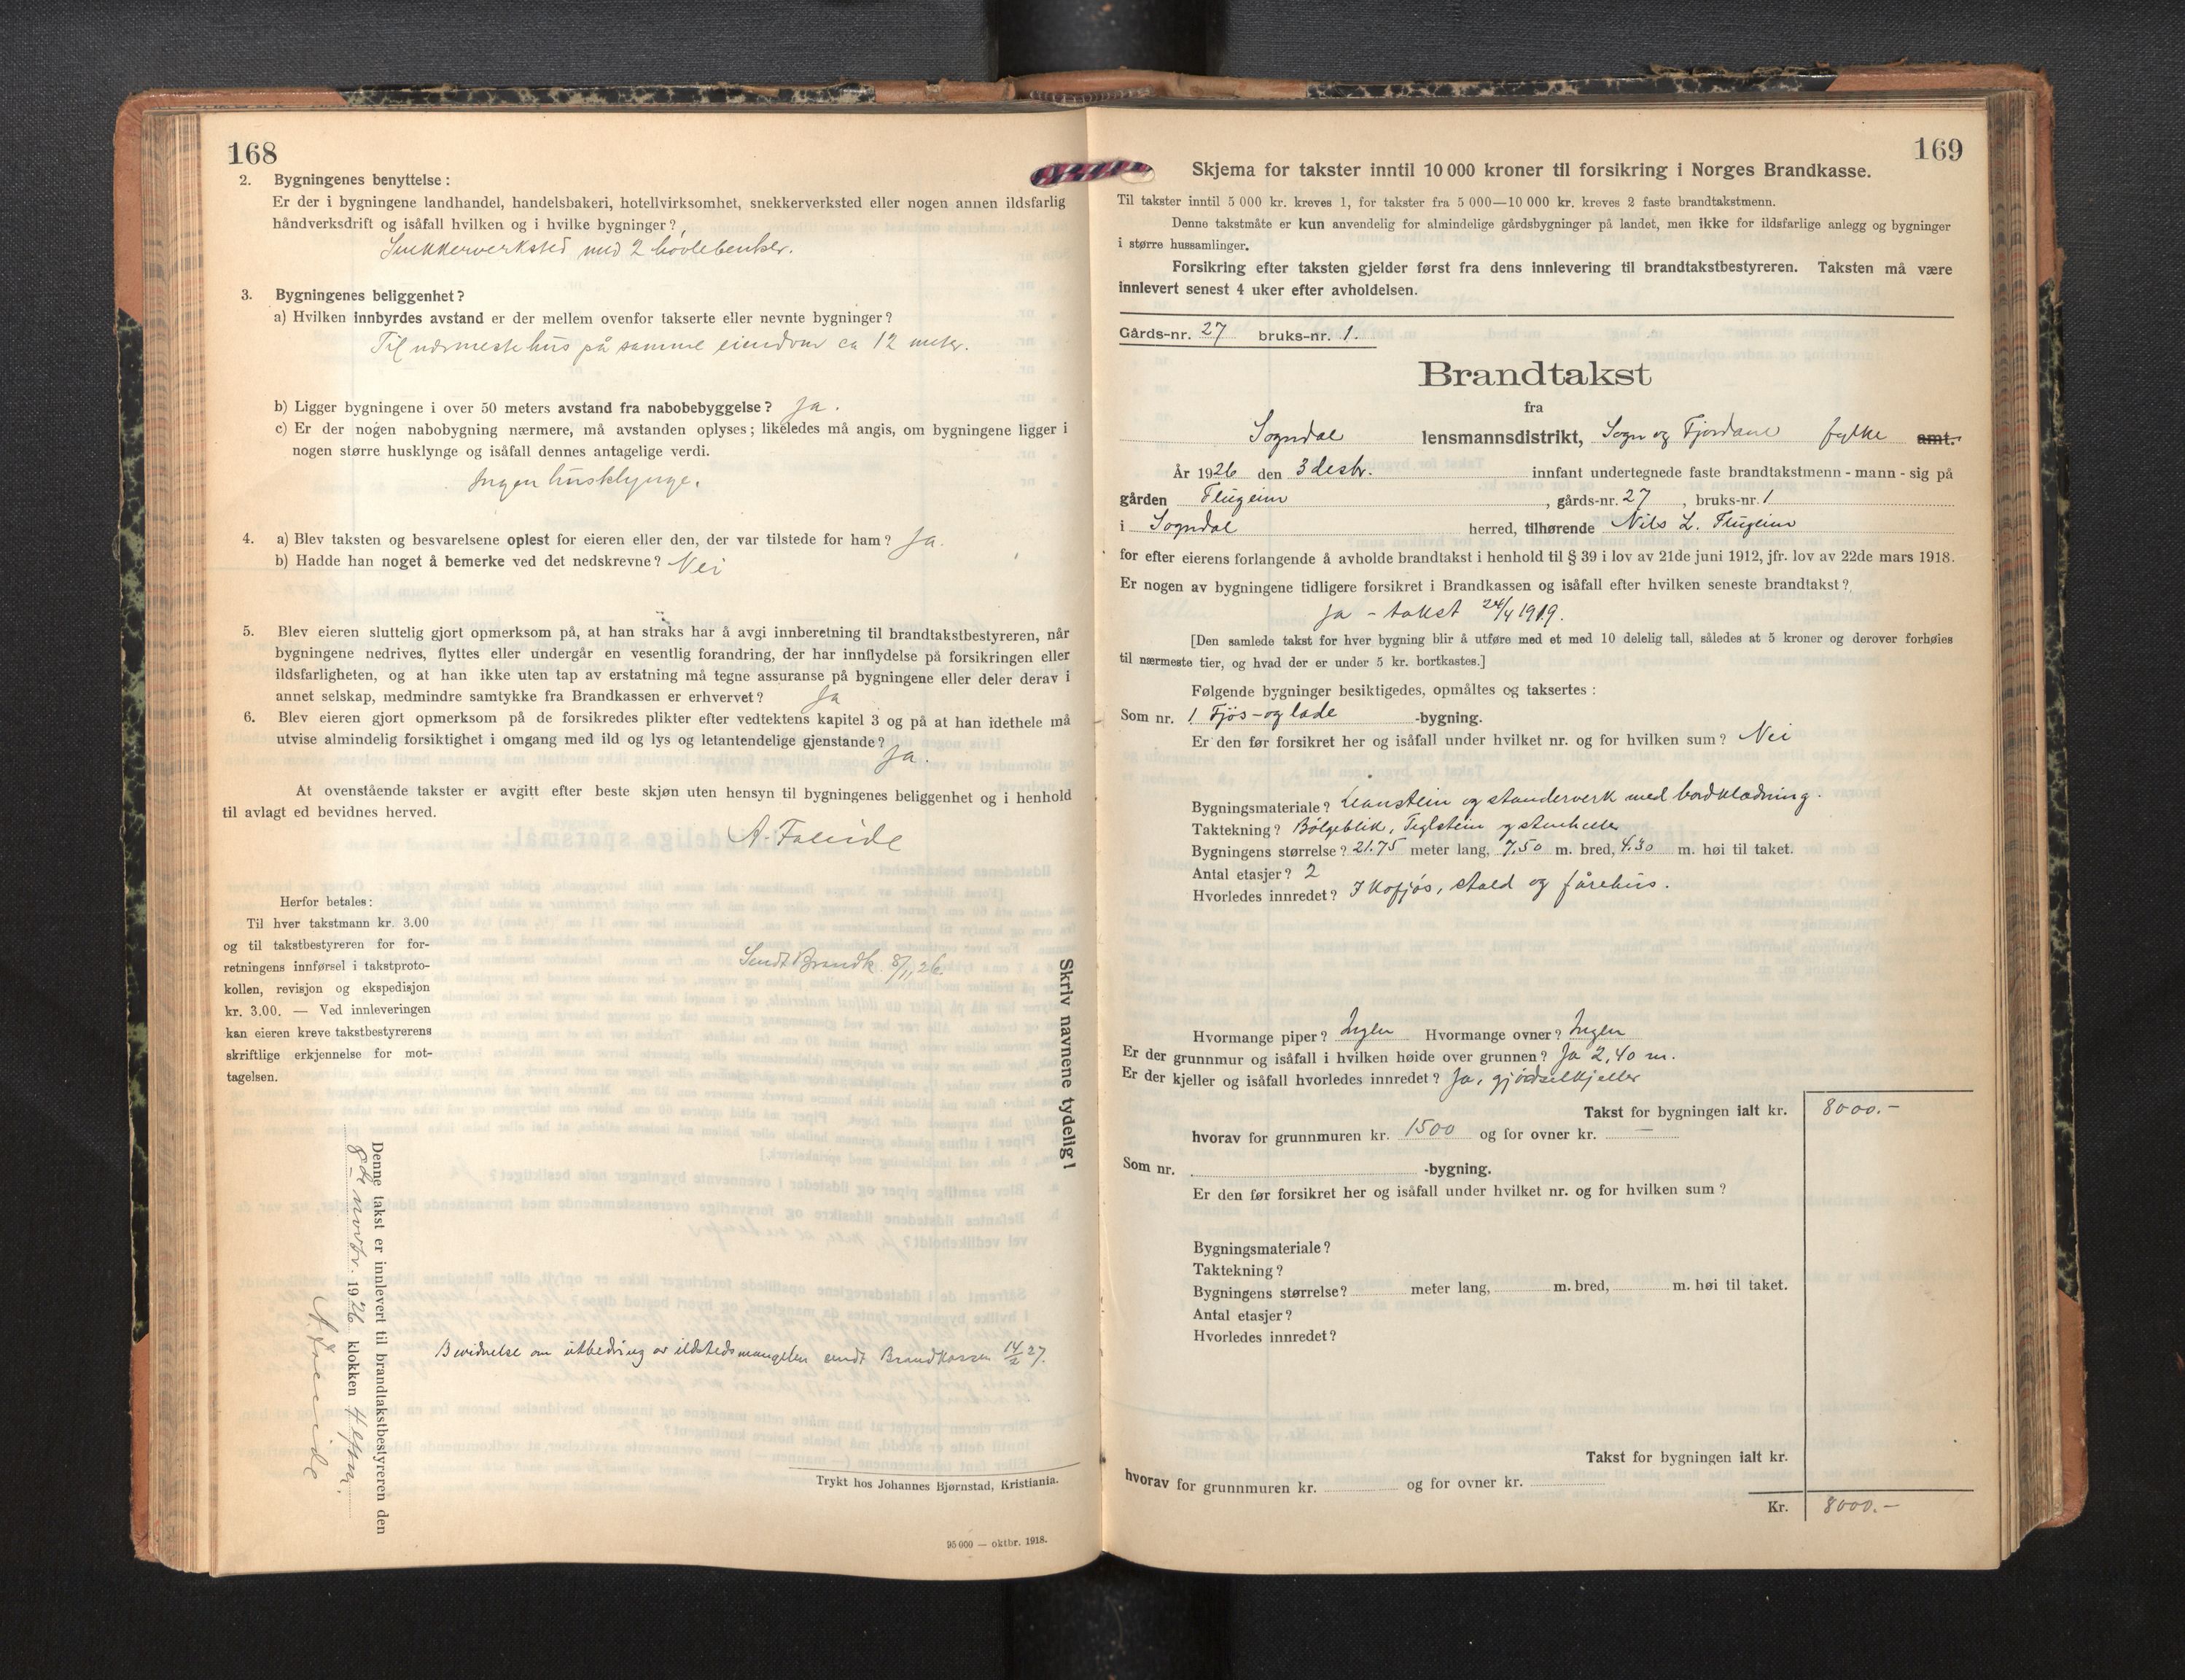 168
2. Bygningenes benyttelse:
Er der i bygningene landhandel, handelsbakeri, hotellvirksomhet, snekkerverksted eller nogen annen ildsfarlig
håndverksdrift og isåfall hvilken og i hvilke bygninger?
Snekkerverksted med 2 hövlebenker.
3. Bygningenes beliggenhet?
a) Hvilken innbyrdes avstand er der mellem ovenfor takserte eller nevnte bygninger?
Til nærmeste hus på samme eiendom ca 12 meter.
b) Ligger bygningene i over 50 meters avstand fra nabobebyggelse? Ja.
c) Er der nogen nabobygning nærmere, må avstanden oplyses; likeledes må angis, om bygningene ligger i
nogen større husklynge og isåfall dennes antagelige verdi.
Ingen husklynge.
4. a) Blev taksten og besvarelsene oplest for eieren eller den, der var tilstede for ham? Ja.
b) Hadde han noget å bemerke ved det nedskrevne? Nei
5. Blev eieren sluttelig gjort opmerksom på, at han straks har å avgi innberetning til brandtakstbestyreren, når
bygningene nedrives, flyttes eller undergår en vesentlig forandring, der har innflydelse på forsikringen eller
ildsfarligheten, og at han ikke uten tap av erstatning må tegne assuranse på bygningene eller deler derav i
annet selskap, medmindre samtykke fra Brandkassen er erhvervet? Ja
6. Blev eieren gjort opmerksom på de forsikredes plikter efter vedtektens kapitel 3 og på at han idethele må
utvise almindelig forsiktighet i omgang med ild og lys og letantendelige gjenstande?
Ja.
At ovenstående takster er avgitt efter beste skjøn uten hensyn til bygningenes beliggenhet og i henhold
til avlagt ed bevidnes herved.
A. Faleide
Herfor betales:
Til hver takstmann kr. 3.00
og til takstbestyreren for for-
retningens innførsel i takstproto-
kollen, revisjon og ekspedisjon
kr. 3.00. — Ved innleveringen
kan eieren kreve takstbestyrerens
skriftlige erkjennelse for mot-
tagelsen.
Sendt Brandk. 8/11 26.
Skriv navnene tydelig!
Denne takst er innlevert til brandtakstbestyreren den
8de novbr. 1926 klokken 4 eftm.
Bevidnelse om utbedring av ildstedsmangelen sendt Brandkassen 14/2 27.
Trykt hos Johannes Bjørnstad, Kristiania.
95 000 — oktbr. 1918.
169
Skjema for takster inntil 10 000 kroner til forsikring i Norges Brandkasse.
Til takster inntil 5 000 kr. kreves 1, for takster fra 5 000—10 000 kr. kreves 2 faste brandtakstmenn.
Denne takstmåte er kun anvendelig for almindelige gårdsbygninger på landet, men ikke for ildsfarlige anlegg og bygninger
i større hussamlinger.
Forsikring efter taksten gjelder først fra dens innlevering til brandtakstbestyreren. Taksten må være
innlevert senest 4 uker efter avholdelsen.
Gårds-nr. 27 bruks-nr. 1.
Brandtakst
fra
Sogndal lensmannsdistrikt, Sogn og Fjordane fylke amt.
År 1926 den 3 desbr. innfant undertegnede faste brandtakstmenn - mann - sig på
gården Flugeim, gårds-nr. 27, bruks-nr. 1
i Sogndal herred, tilhørende Nils L. Flugeim
for efter eierens forlangende å avholde brandtakst i henhold til § 39 i lov av 21de juni 1912, jfr. lov av 22de mars 1918.
Er nogen av bygningene tidligere forsikret i Brandkassen og isåfall efter hvilken seneste brandtakst?
Ja - takst 24/4 1919.
[Den samlede takst for hver bygning blir å utføre med et med 10 delelig tall, således at 5 kroner og derover forhøies
til nærmeste tier, og hvad der er under 5 kr. bortkastes.]
Følgende bygninger besiktigedes, opmåltes og taksertes:
Som nr. 1 Fjös- og lade -bygning.
Er den før forsikret her og isåfall under hvilket nr. og for hvilken sum? Nei
Bygningsmateriale? og standerverk med bordklædning.
Taktekning? Bölgeblik, Teglstein og stenheller
Bygningens størrelse? 21.75 meter lang, 7,50 m. bred, 4.30 m. høi til taket.
Antal etasjer? 2
Hvorledes innredet? I kofjös, stald og fårehus.
Hvormange piper? Ingen Hvormange ovner? Ingen
Er der grunnmur og isåfall i hvilken høide over grunnen? Ja 2,40 m.
Er der kjeller og isåfall hvorledes innredet? Ja, gjödselkjeller
Takst for bygningen ialt kr. 8000.-
hvorav for grunnmuren kr. 1500 og for ovner kr. —
Som nr. -bygning.
Er den før forsikret her og isåfall under hvilket nr. og for hvilken sum?
Bygningsmateriale?
Taktekning?
Bygningens størrelse? meter lang, m. bred, m. høi til taket.
Antal etasjer?
Hvorledes innredet?
Takst for bygningen ialt kr.
hvorav for grunnmuren kr. og for ovner kr.
Kr. 8000.-